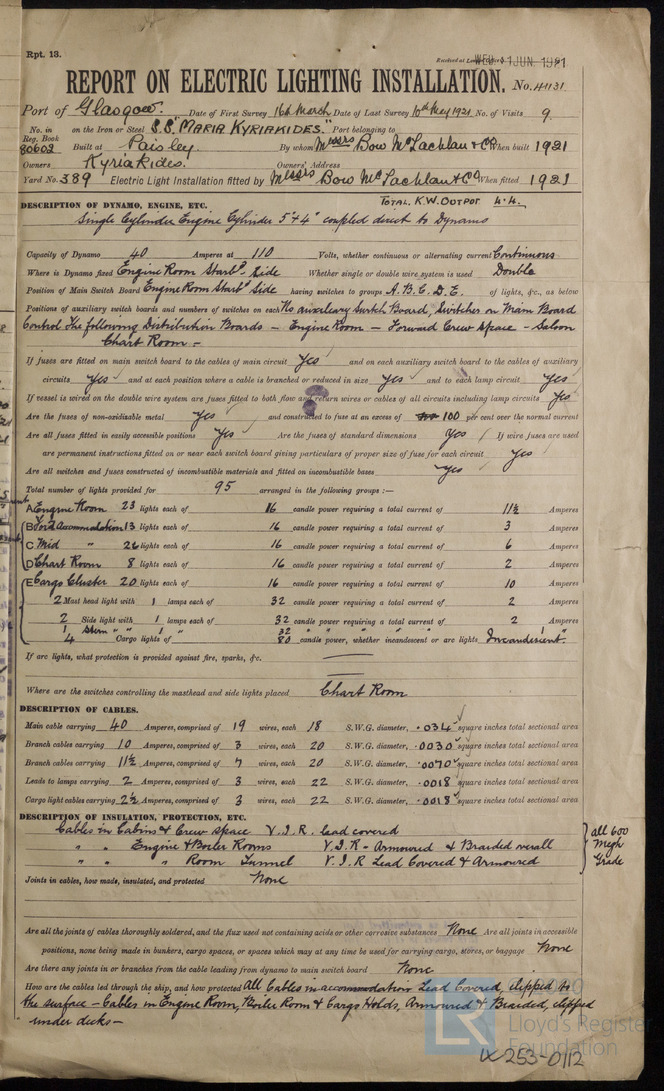 Rpt. 13.
WED. 1 JUN 1921
REPORT ON ELECTRIC LIGHTING INSTALLATION. No. 41131
Port of Glasgow. Date of First Survey 16th March Date of Last Survey 10th May 1921 No. of Visits 9.
No. in Reg. Book 80602 on the Iron or Steel S.S. "MARIA KYRIAKIDES." Port belonging to
Built at Paisley. By whom Messrs Bow McLachlan & Co When built 1921
Owners Kyriakides. Owners' Address
Yard No. 389 Electric Light Installation fitted by Messrs Bow McLachlan & Co. When fitted 1921
DESCRIPTION OF DYNAMO, ENGINE, ETC. TOTAL K.W. OUTPUT 4.4.
Single Cylinder Engine Cylinder 5"+4" coupled direct to Dynamo
Capacity of Dynamo 40 Amperes at 110 Volts, whether continuous or alternating current Continuous
Where is Dynamo fixed Engine Room Starbd. Side Whether single or double wire system is used Double
Position of Main Switch Board Engine Room Starbd Side having switches to groups A. B. C. D. E. of lights, &c., as below
Positions of auxiliary switch boards and numbers of switches on each No auxiliary Switch Board, Switches on Main Board
Control The following Distribution Boards – Engine Room – Forward Crew Space – Saloon
Chart Room –
If fuses are fitted on main switch board to the cables of main circuit Yes and on each auxiliary switch board to the cables of auxiliary
circuits Yes and at each position where a cable is branched or reduced in size Yes and to each lamp circuit Yes
If vessel is wired on the double wire system are fuses fitted to both flow and return wires or cables of all circuits including lamp circuits Yes
Are the fuses of non-oxidisable metal Yes and constructed to fuse at an excess of 100 per cent over the normal current
Are all fuses fitted in easily accessible positions Yes Are the fuses of standard dimensions Yes If wire fuses are used
are permanent instructions fitted on or near each switch board giving particulars of proper size of fuse for each circuit Yes
Are all switches and fuses constructed of incombustible materials and fitted on incombustible bases Yes
Total number of lights provided for 95 arranged in the following groups :—
A Engine Room 23 lights each of 16 candle power requiring a total current of 11½ Amperes
B Ford Accomodation 13 lights each of 16 candle power requiring a total current of 3 Amperes
C Mid " 26 lights each of 16 candle power requiring a total current of 6 Amperes
D Chart Room 8 lights each of 16 candle power requiring a total current of 2 Amperes
E Cargo Cluster 20 lights each of 16 candle power requiring a total current of 10 Amperes
2 Mast head light with 1 lamps each of 32 candle power requiring a total current of 2 Amperes
2 Side light with 1 lamps each of 32 candle power requiring a total current of 2 Amperes
1 Stern " " 1 " 32 " " " " 1 "
4 Cargo lights of 80 candle power, whether incandescent or arc lights Incandescent.
If arc lights, what protection is provided against fire, sparks, &c.
Where are the switches controlling the masthead and side lights placed Chart Room
DESCRIPTION OF CABLES.
Main cable carrying 40 Amperes, comprised of 19 wires, each 18 S.W.G. diameter, .034 square inches total sectional area
Branch cables carrying 10 Amperes, comprised of 3 wires, each 20 S.W.G. diameter, .0030 square inches total sectional area
Branch cables carrying 11½ Amperes, comprised of 7 wires, each 20 S.W.G. diameter, .0070 square inches total sectional area
Leads to lamps carrying 2 Amperes, comprised of 3 wires, each 22 S.W.G. diameter, .0018 square inches total sectional area
Cargo light cables carrying 2½ Amperes, comprised of 3 wires, each 22 S.W.G. diameter, .0018 square inches total sectional area
DESCRIPTION OF INSULATION, PROTECTION, ETC.
Cables in Cabins & Crew space V.I.R. lead covered
" " Engine & Boiler Rooms V.I.R – Armoured & Braided overall
" " " Room Tunnel V.I.R Lead Covered & Armoured
all 600 Megh Grade
Joints in cables, how made, insulated, and protected None
Are all the joints of cables thoroughly soldered, and the flux used not containing acids or other corrosive substances None Are all joints in accessible
positions, none being made in bunkers, cargo spaces, or spaces which may at any time be used for carrying cargo, stores, or baggage None
Are there any joints in or branches from the cable leading from dynamo to main switch board None
How are the cables led through the ship, and how protected All Cables in accommodation Lead Covered, clipped to
the surface – Cables in Engine Room, Boiler Room & Cargo Holds, Armoured & Braided, clipped
under decks –
LR
Lloyd's Register
Foundation
IX 253-0112